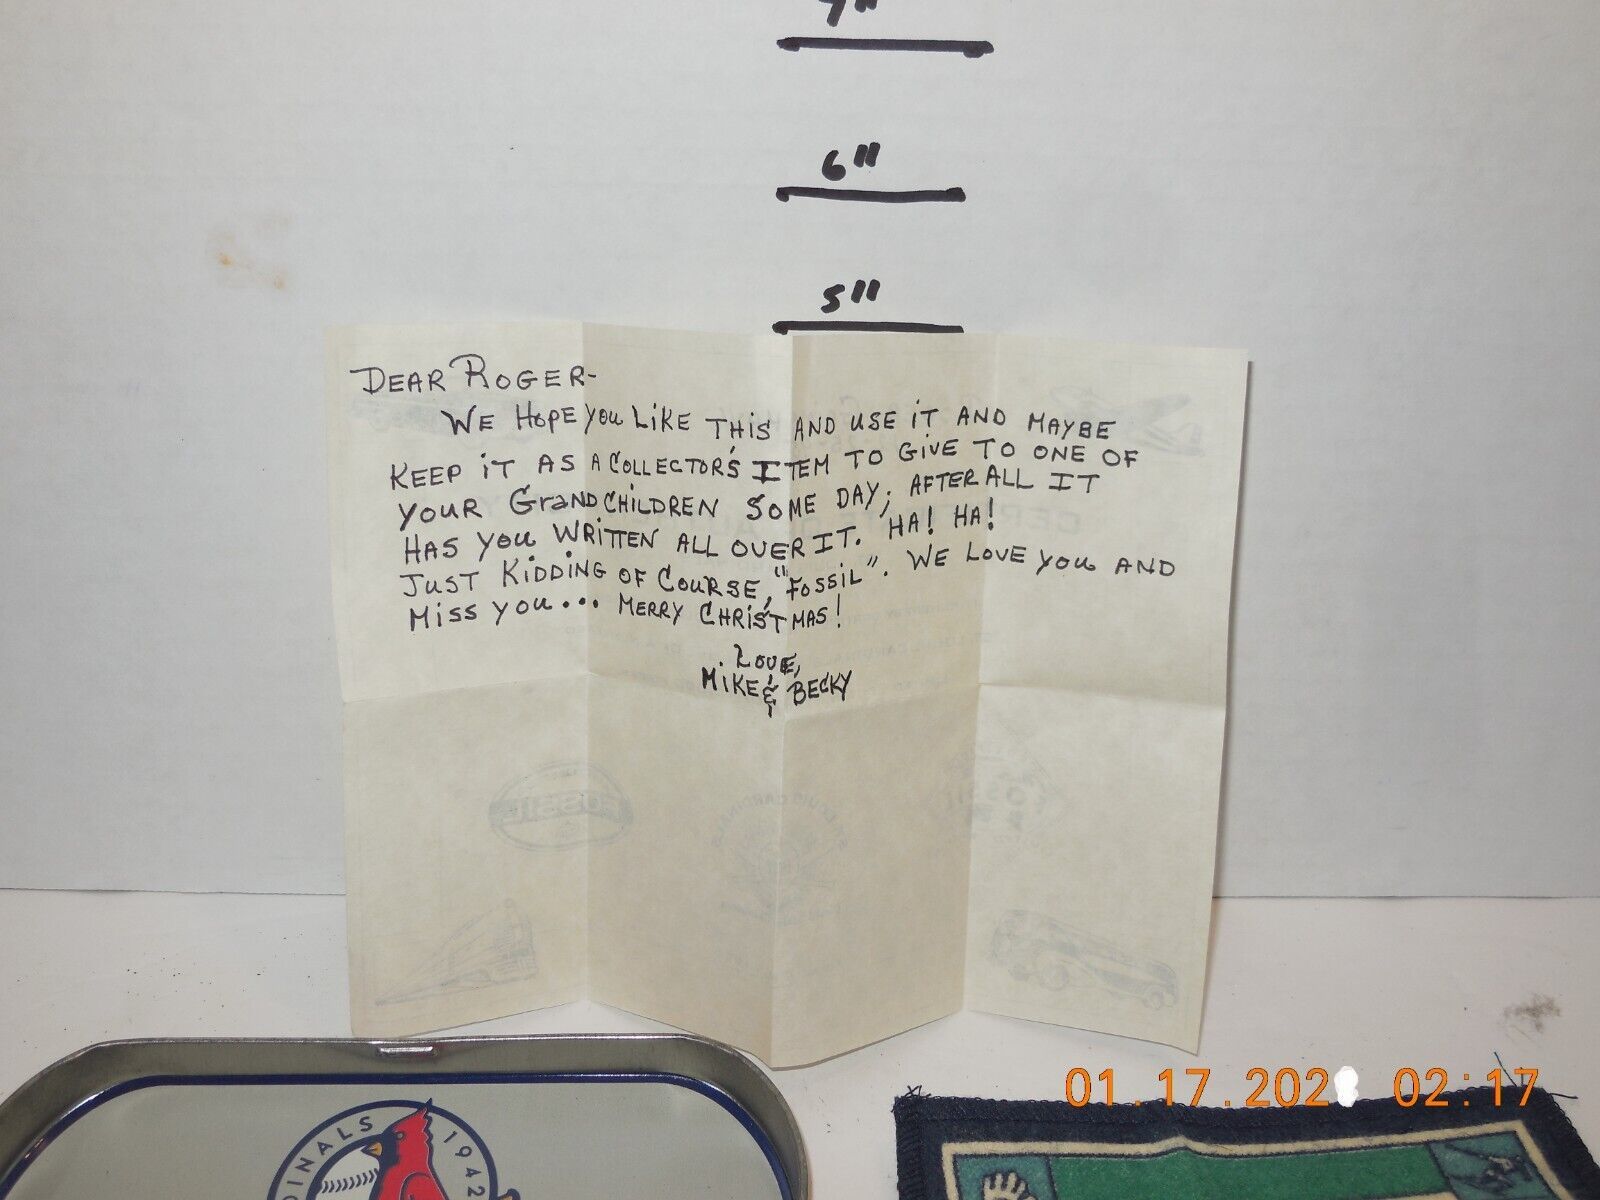 7"
6"
5"
DEAR ROGER-
WE HOPE you LiKE THiS AND USE iT AND MAYBE
KEEP iT AS A COLLECTOR'S ITEM TO GiVE TO ONE OF
YOUR GrandCHiLDREN SOME DAY; AFTER ALL IT
HAS you WRiTTEN ALL OVER IT. HA! HA!
JUST KiDDiNG OF COURSE, "FOSSiL". WE LOVE you AND
Miss you... MERRY CHRiSTMAS!
LOVE,
MiKE & BECKY
FOSSIL
ST. LOUIS CARDINALS
DINALS 1942
01.17.202 02:17